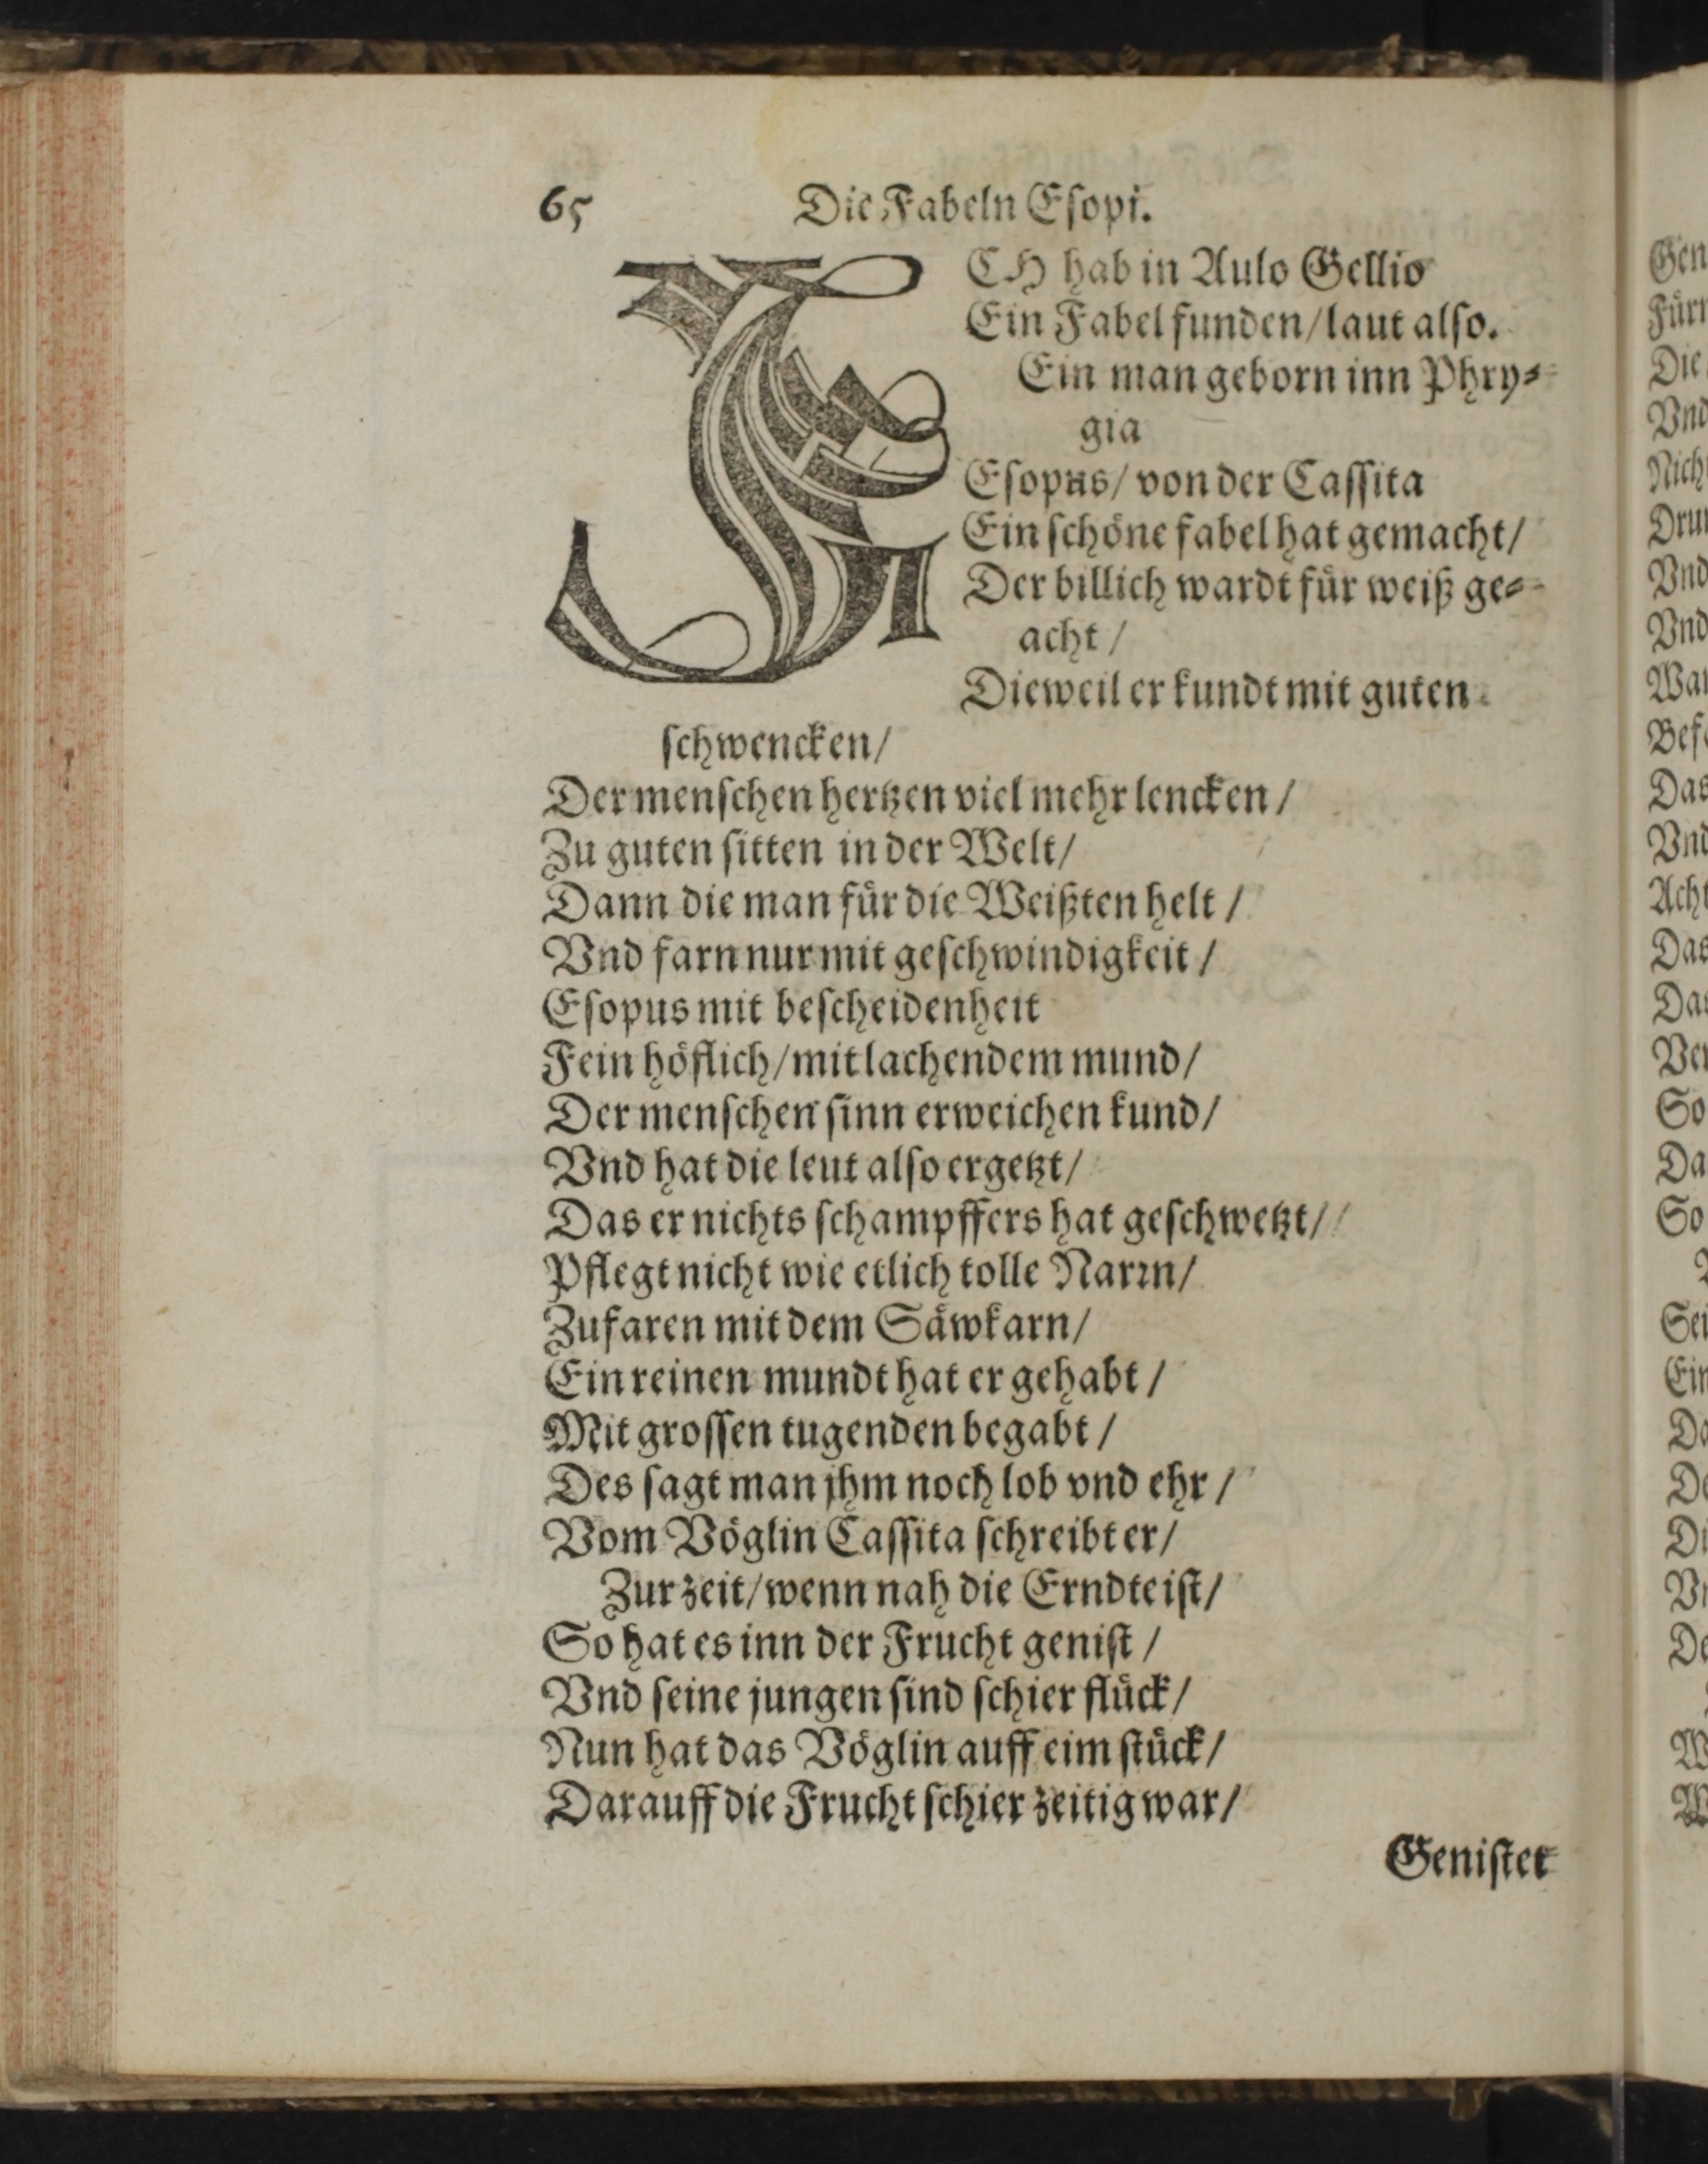 65 Die Fabeln Eſopi.
ICH hab in Aulo Gellio
Ein Fabel funden/ laut alſo.
Ein man geborn inn Phry⸗
gia
Eſopus/ von der Caſſita
Ein ſchöne fabel hat gemacht/
Der billich wardt für weiß ge⸗
acht /
Dieweil er kundt mit guten
ſchwencken/
Der menſchen hertzen viel mehr lencken /
Zu guten ſitten in der Welt/
Dann die man für die Weißten helt /
Vnd farn nur mit geſchwindigkeit /
Eſopus mit beſcheidenheit
Fein höflich/ mit lachendem mund/
Der menſchen ſinn erweichen kund/
Vnd hat die leut alſo ergetzt/
Das er nichts ſchampffers hat geſchwetzt/
Pflegt nicht wie etlich tolle Narꝛn/
Zufaren mit dem Säwkarn/
Ein reinen mundt hat er gehabt /
Mit groſſen tugenden begabt /
Des ſagt man jhm noch lob vnd ehr /
Vom Vöglin Caſſita ſchreibt er/
Zur zeit/ wenn nah die Erndte iſt/
So hat es inn der Frucht geniſt /
Vnd ſeine jungen ſind ſchier flück/
Nun hat das Vöglin auff eim ſtück/
Darauff die Frucht ſchier zeitig war/
Geniſtet
Gen
Fürn
Die
Vnd
Nich
Drum
Vnd
Vnd
War
Beſe
Das
Vnd
Acht
Das
Das
Ver
So
Da
So
Sei
Ein